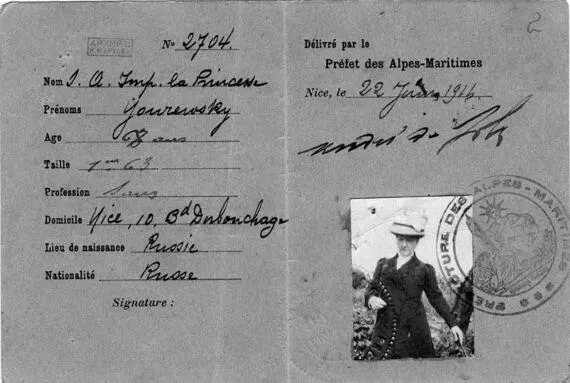 АРХИВЪ
№ 2704.
Nom S. A. Imp. la Princesse
Prénoms Yourewsky
Age ans
Taille 1m 63
Profession Sans
Domicile Nice, 10, Bd Dubouchage
Lieu de naissance Russie
Nationalité Russe
Signature :
2
Délivré par le
Préfet des Alpes-Maritimes
Nice, le 22 Juin 1916
André de
PRÉFECTURE DES ALPES-MARITIMES